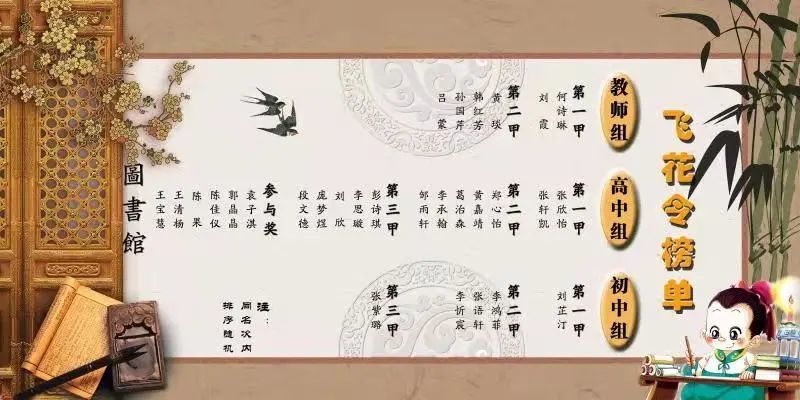 飞花令榜单
教师组
第一甲
何诗琳
刘霞
第二甲
黄琰
韩红芳
孙国萍
吕蒙
高中组
第一甲
张欣怡
张轩凯
第二甲
郑心怡
黄嘉靖
葛治森
李承翰
邹雨轩
第三甲
彭诗琪
李思璇
刘欣
庞梦煜
段文德
参与奖
袁子淇
郭晶晶
陈佳仪
陈果
王清杨
王宝慧
初中组
第一甲
刘芷汀
第二甲
李鸿菲
张语轩
李忻宸
第三甲
张紫璐
注：
同名次内
排序随机
圖書館